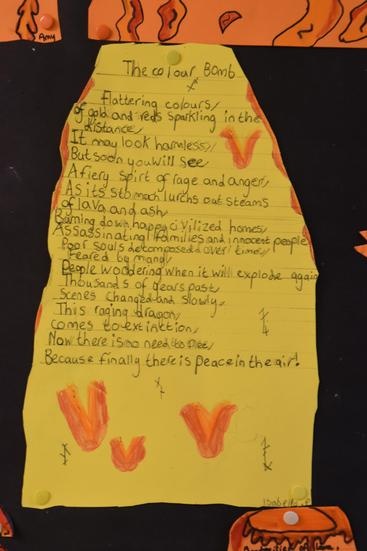 Amy
The colour Bomb
Flattering colours,
of gold and reds sparkling in the
distance,
It may look harmless,
But soon you will see,
A fiery spirt of rage and anger,
As its stomach lurchs out steams
of lava and ash,
Burning down happy civilized homes,
Assassinating families and innocent people
Poor souls decomposed over time,
Feared by many,
People woodering when it will explode again
Thousands of years past,
Scenes changed and slowly,
This raging dragon,
comes to extinttion,
Now there is no need to
Because finally there is peace in the air!
Isabella